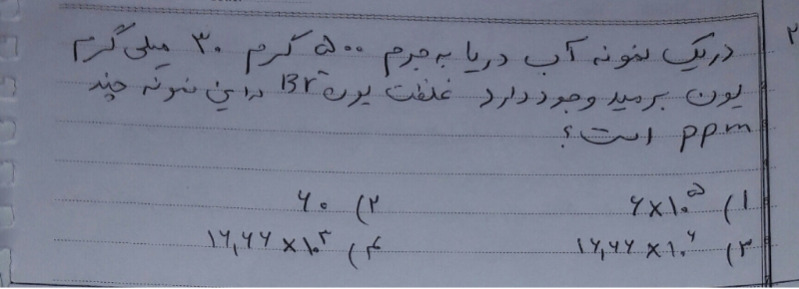 ۲
در یک نمونه آب دریا به جرم ۵۰۰ گرم ۳۰ میلی گرم
یون برمید وجود دارد غلظت یون Br⁻ در این نمونه چند
ppm است؟
۱) ۶×۱۰^۵ ۲) ۶۰
۳) ۱۶,۶۶×۱۰^۶ ۴) ۱۶,۶۶×۱۰^۳